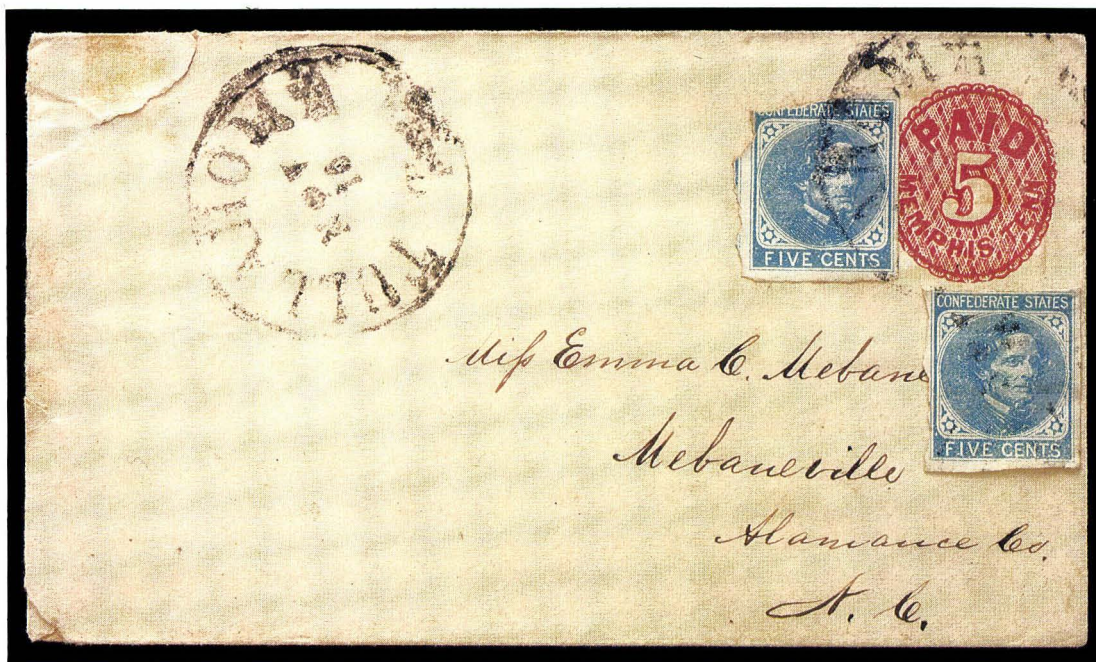 TULLAHOMA
CONFEDERATE STATES
FIVE CENTS
PAID
5
MEMPHIS TENN
CONFEDERATE STATES
FIVE CENTS
Miss Emma C. Mebane
Mebaneville
Alamance Co.
N. C.